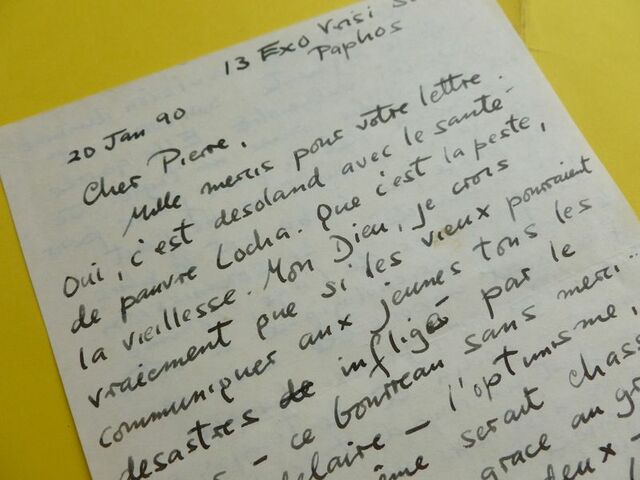 13 Exo Vrisi
Paphos
20 Jan 90
Cher Pierre,
Mille mercis pour votre lettre.
Oui, c'est desoland avec le santé
de pauvre Locha. Que c'est la peste,
la vieillesse. Mon Dieu, je crois
vraiement que si les vieux pourraient
communiquer aux jeunes tous les
desastres infligés par le
- ce bourreau sans merci...
delaire - l'optimisme,
ême serait chass
grace au gr
deux -